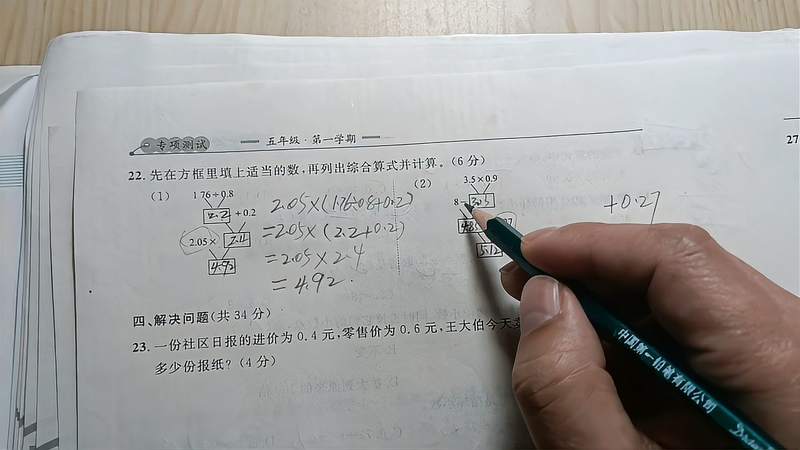 专项测试 五年级·第一学期
27
22.先在方框里填上适当的数,再列出综合算式并计算。(6分)
(1) 1.76÷0.8
2.2 +0.2
2.05× 2.4
4.92
2.05×(1.76÷0.8+0.2)
=2.05×(2.2+0.2)
=2.05×2.4
=4.92
(2) 3.5×0.9
8-
5.12
+0.27
四、解决问题(共34分)
23.一份社区日报的进价为0.4元,零售价为0.6元,王大伯今天
多少份报纸?(4分)
中国第一铅笔有限公司